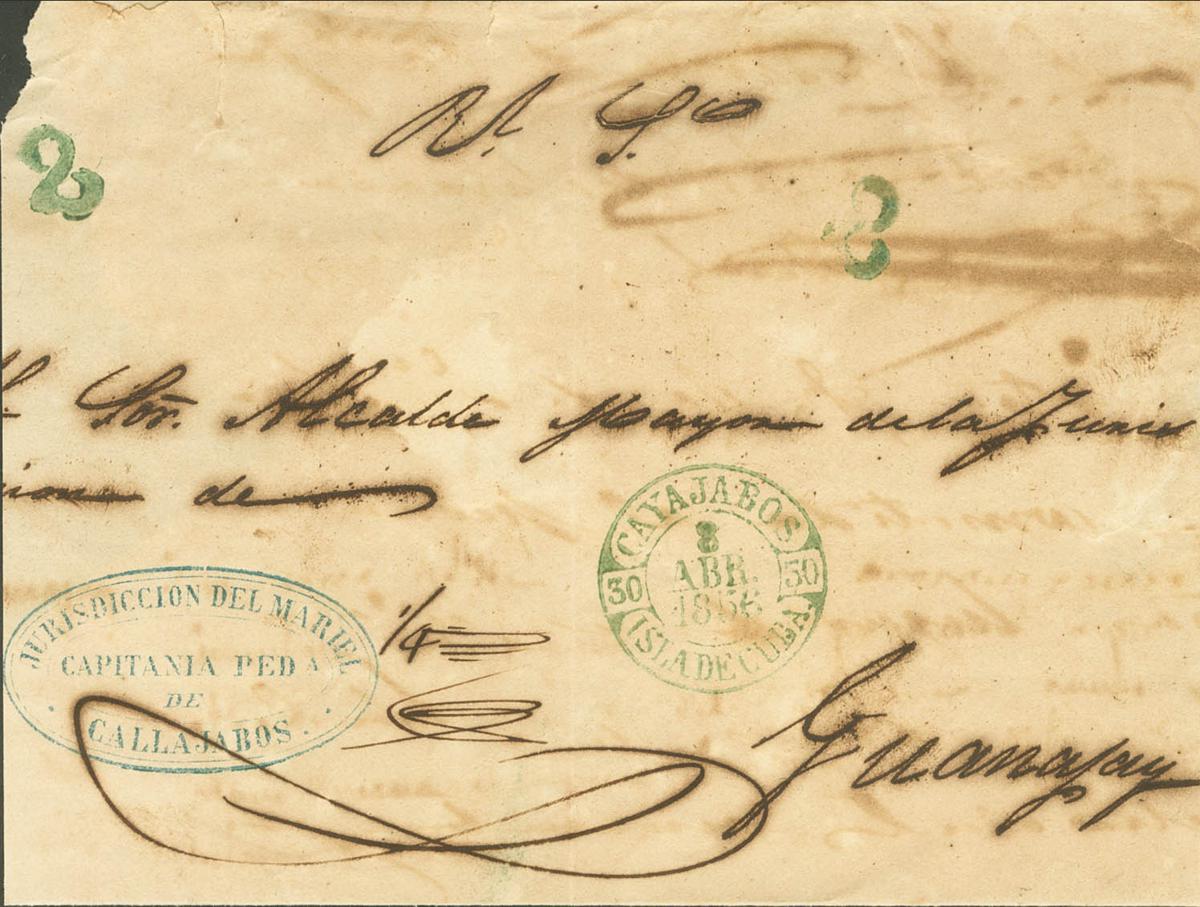 Rl. S.º
2
2
Sor. Alcalde Mayor de la Juris
cion de
CAYAJABOS
8
ABR.
1856
30 30
ISLA DE CUBA
JURISDICCION DEL MARIEL
CAPITANIA PEDA
DE
CALLAJABOS.
1/4
Guanajay